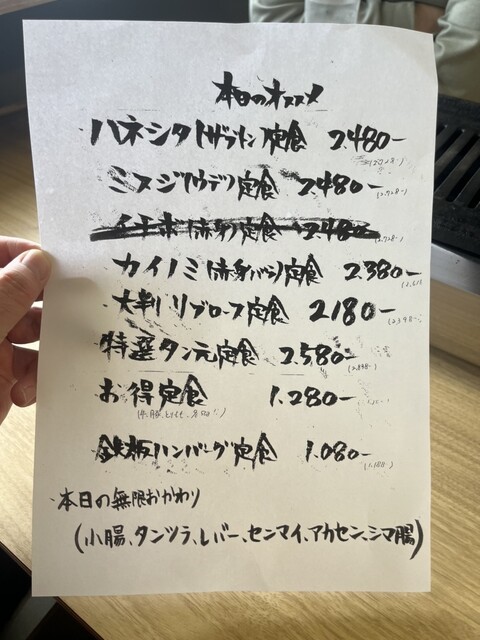 本日のオススメ
ハネシタ(ザブトン)定食 2.480-
ミスジ(ウデ)定食 2480-
(2.728-)
イチボ(赤身)定食 2.480
カイノミ(赤身バラ)定食 2.380-
大判リブロース定食 2180-
特選タン元定食 2.580-
(2.838-)
お得定食 1.280-
鉄板ハンバーグ定食 1.080-
(1.188-)
本日の無限おかわり
(小腸、タンツラ、レバー、センマイ、アカセン、シマ腸)